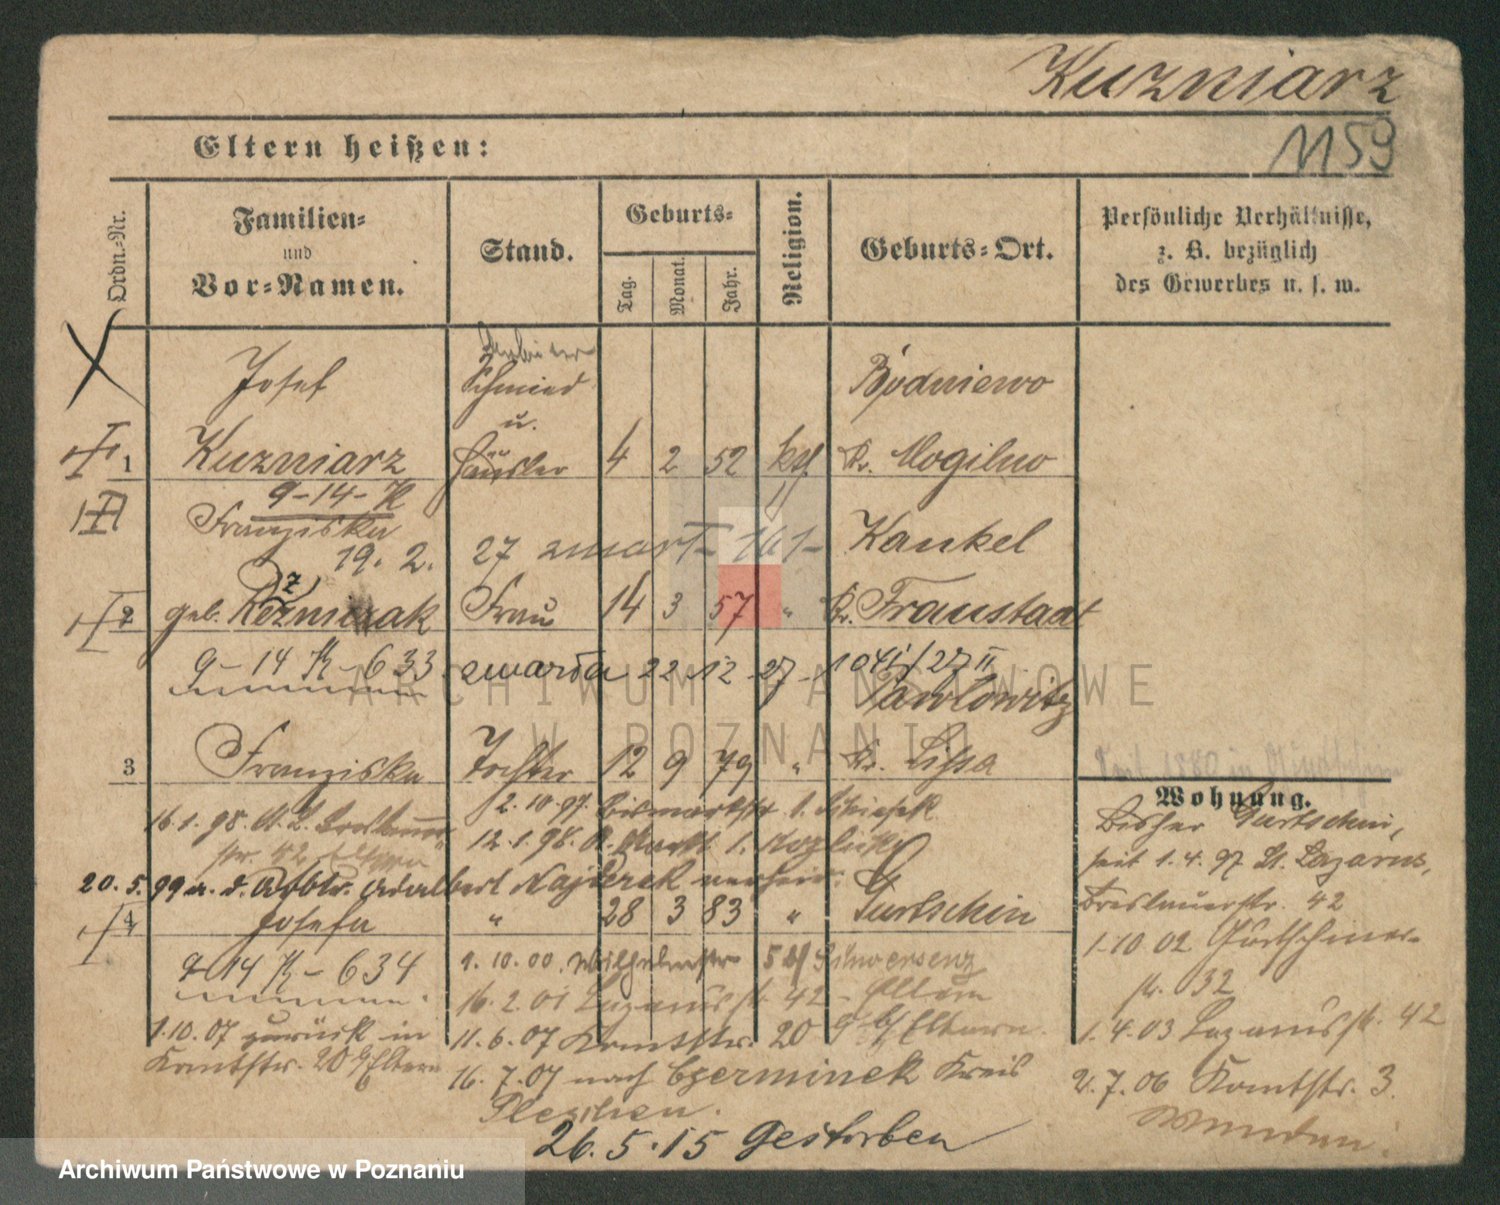 Kuzniarz
1159
Eltern heißen:
Ordn.-Nr.
Familien-
und
Vor-Namen.
Stand.
Geburts-
Tag.
Monat.
Jahr.
Religion.
Geburts-Ort.
Persönliche Verhältnisse,
z. B. bezüglich
des Gewerbes u. s. w.
Josef Schmied Bodniewo
u.
1 Kuzniarz Häusler 4 2 52 kth Kr. Mogilno
9-14-K
Franziska Kankel
19. 2. 27 zmart
2 geb. Frau 14 3 57 " Kr. Fraustadt
9-14 K-633 zmarła 22 12 27 1041/27 II
Pawlowitz
3 Franziska Tochter 12 9 79 " Kr. Lissa
Wohnung.
2.10.97. Bismarckstr
16.1.98. 12.1.98.
str. 42 Eltern
20.5.99 a. d. Arbtr. Adalbert verheir.
4 Josefa " 28 3 83 " Gurtschin
9-14 K-634
1.10.00. Wilhelmstr Schwersenz
16.2.01 Lazarusstr. 42 - Eltern
1.10.07 zurück in
11.6.07 20 b/ Eltern.
20 b/ Eltern
16.7.07 nach Czerminek Kreis
Pleschen.
26.5.15 Gestorben
Bisher Gurtschin,
seit 1.4.97 St. Lazarus,
Breslauerstr. 42
1.10.02 Gurtschiner-
str. 32
1.4.03 Lazarusstr. 42
2.7.06 3.
ARCHIWUM PAŃSTWOWE
W POZNANIU
Archiwum Państwowe w Poznaniu